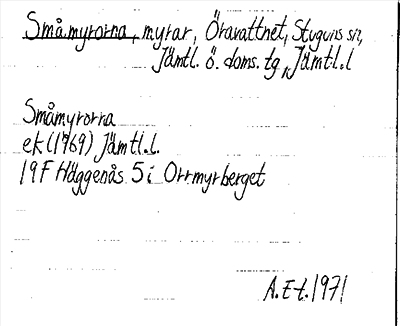 Småmyrorna, myrar, Öravattnet, Stuguns sn,
Jämtl. ö. doms. tg, Jämtl.l
Småmyrorna
ek (1969) Jämtl.l.
19F Häggenås 5i Orrmyrberget
A. E-t. 1971